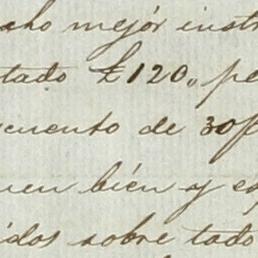 cho mejór instr
tado £120, pe
cuento de 30p
uen bién y es
idos sobre todo